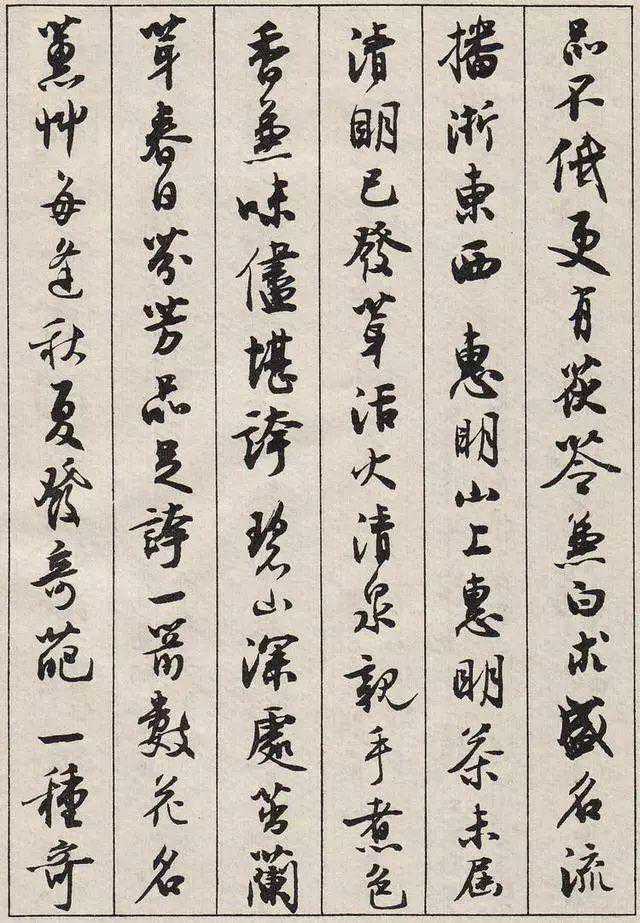 品不低更有茯苓兼白术盛名流
播浙東西 惠明山上惠明茶未屆
清明已發芽活火清泉親手煮色
香兼味儘堪誇 碧山深處茁蘭
芽春日芬芳品足誇一箭數花名
蕙艸每逢秋夏發奇葩 一種奇